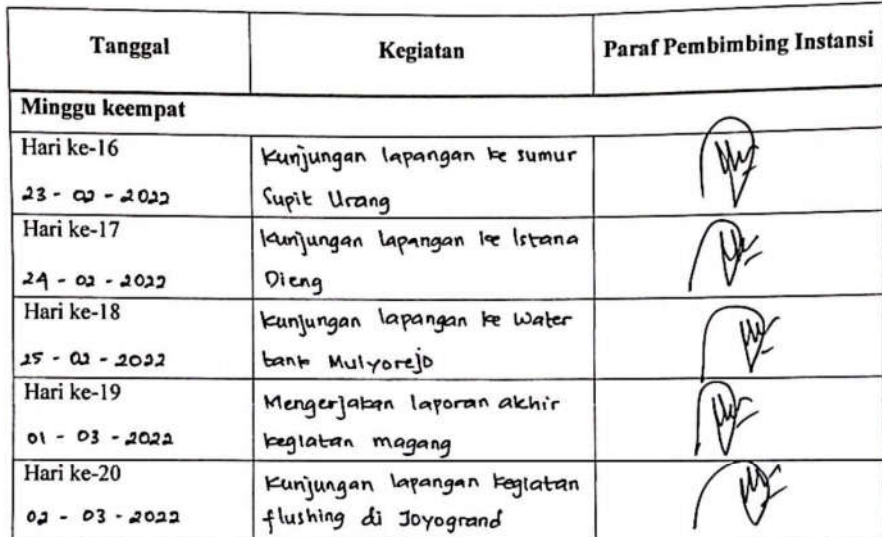 Tanggal
Kegiatan
Paraf Pembimbing Instansi
Minggu keempat
Hari ke-16
23 - 02 - 2022
Kunjungan lapangan ke sumur
Supit Urang
Hari ke-17
24 - 02 - 2022
Kunjungan lapangan ke Istana
Dieng
Hari ke-18
25 - 02 - 2022
Kunjungan lapangan ke Water
tank Mulyorejo
Hari ke-19
01 - 03 - 2022
Mengerjakan laporan akhir
kegiatan magang
Hari ke-20
02 - 03 - 2022
Kunjungan lapangan kegiatan
flushing di Joyogrand